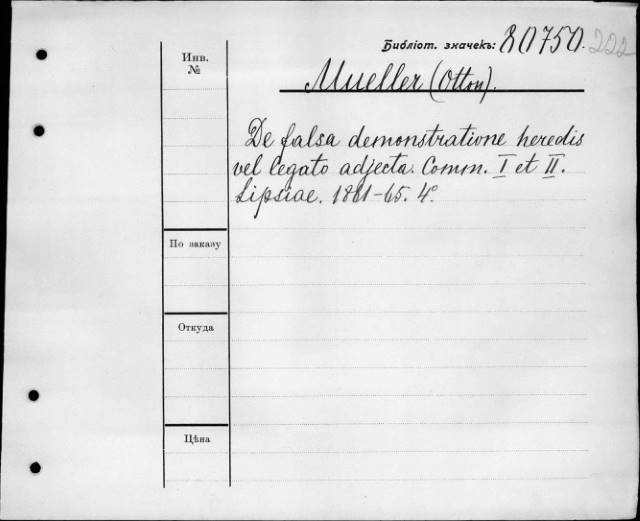 Библіот. значекъ: 80750. 222
Инв.
№
Mueller (Otton).
De falsa demonstratione heredis
vel legato adjecta. Comm. I et II.
Lipsiae. 1861-65. 4°.
По заказу
Откуда
Цѣна